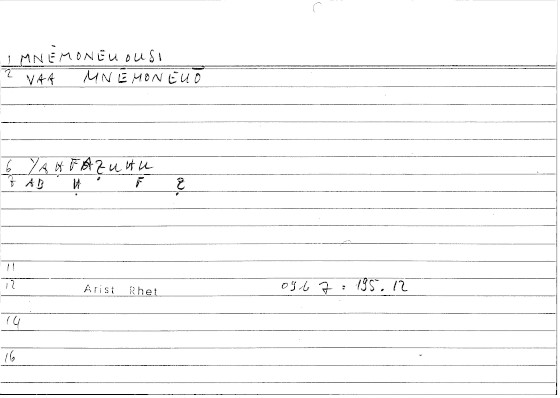 1 MNĒMONEUOUSI
2 VAA MNĒMONEUŌ
6 YAḤFAẒUHU
7 AB Ḥ F Ẓ
11
12 Arist Rhet 09b 7 : 195.12
14
16